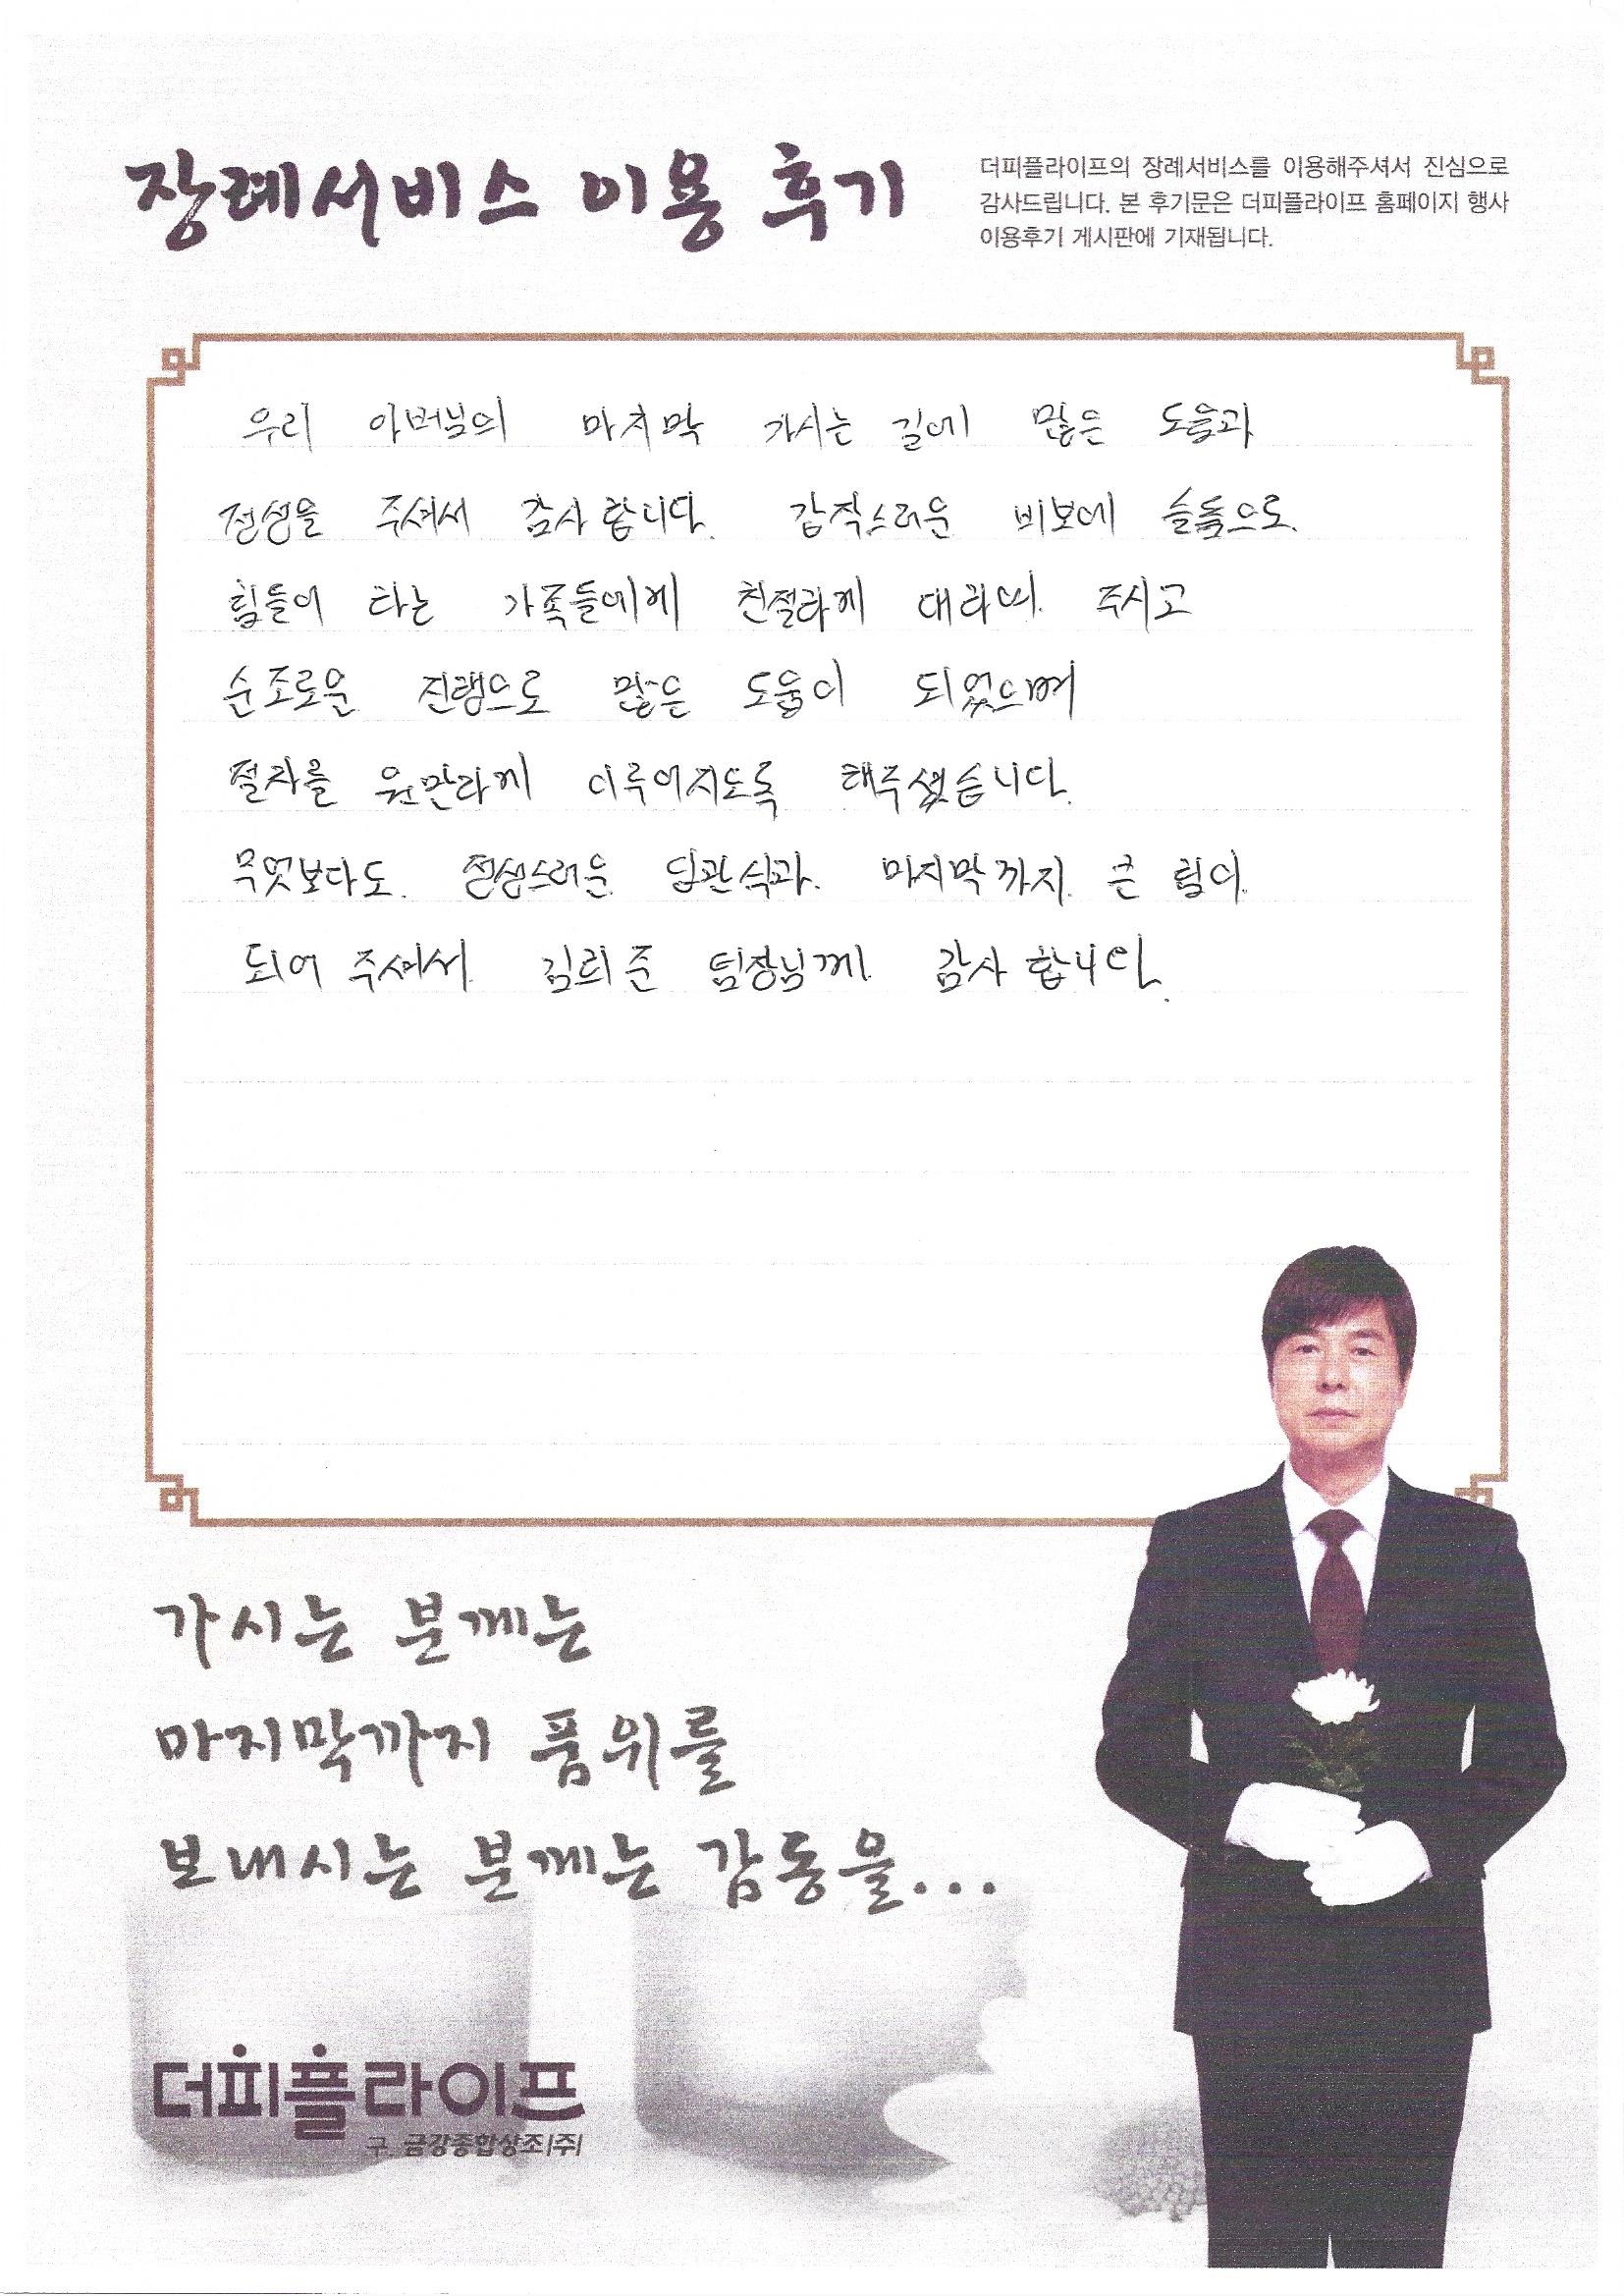 장례서비스 이용 후기
더피플라이프의 장례서비스를 이용해주셔서 진심으로
감사드립니다. 본 후기문은 더피플라이프 홈페이지 행사
이용후기 게시판에 기재됩니다.
우리 아버님의 마지막 가시는 길에 많은 도움과
정성을 주셔서 감사합니다. 갑작스러운 비보에 슬픔으로
힘들어 하는 가족들에게 친절하게 대하여 주시고
순조로운 진행으로 많은 도움이 되었으며
절차를 원만하게 이루어지도록 해주셨습니다.
무엇보다도 정성스러운 입관식과 마지막까지 큰 힘이
되어 주셔서 김희준 팀장님께 감사합니다.
가시는 분께는
마지막까지 품위를
보내시는 분께는 감동을...
더피플라이프
구. 금강종합상조(주)